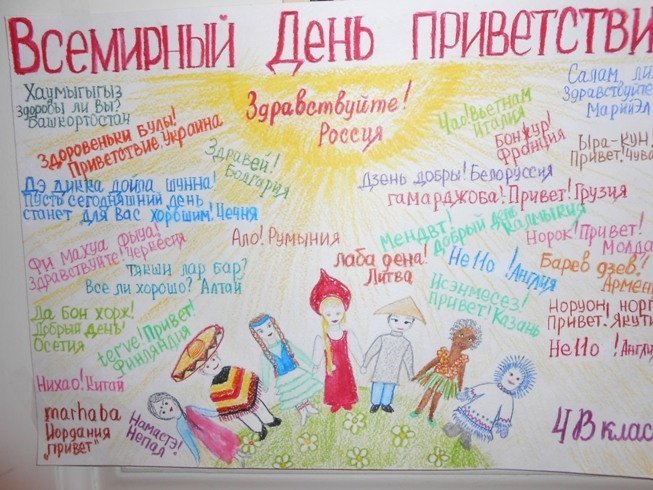 Всемирный День приветстви
Хаумыгыгыз
Здоровы ли вы?
Башкортостан
Здоровеньки Булы!
Приветствие, Украина
Здравей!
Болгария
Здравствуйте!
Россия
Чао! Вьетнам
Италия
Бонжур!
Франция
Салам, ли
Здравствуйте
МарийЭл
Ыра-кун,
Привет. Чува
Дэ дикка дойла шунна!
Пусть сегодняшний день
станет для Вас хорошим! Чечня
Дзень добры! Белоруссия
гамарджоба! Привет! Грузия
Мендвт!
Добрый день
Калмыкия
Норок! Привет!
Молда
Фи махуа фыуа!
Здравствуйте! Черкесия
Ало! Румыния
лаба дена!
Литва
Hello! Англия
Барев дзев!
Армен
Якши лар бар?
Все ли хорошо? Алтай
Исэнмесез!
Привет! Казань
Норуон, норг
Привет. Якути
Ла бон хорж!
Добрый день!
Осетия
terve! Привет!
Финляндия
Hello! Англи
Нихао! Китай
marhaba
Иордания
"привет"
Намастэ!
Непал
4В клас